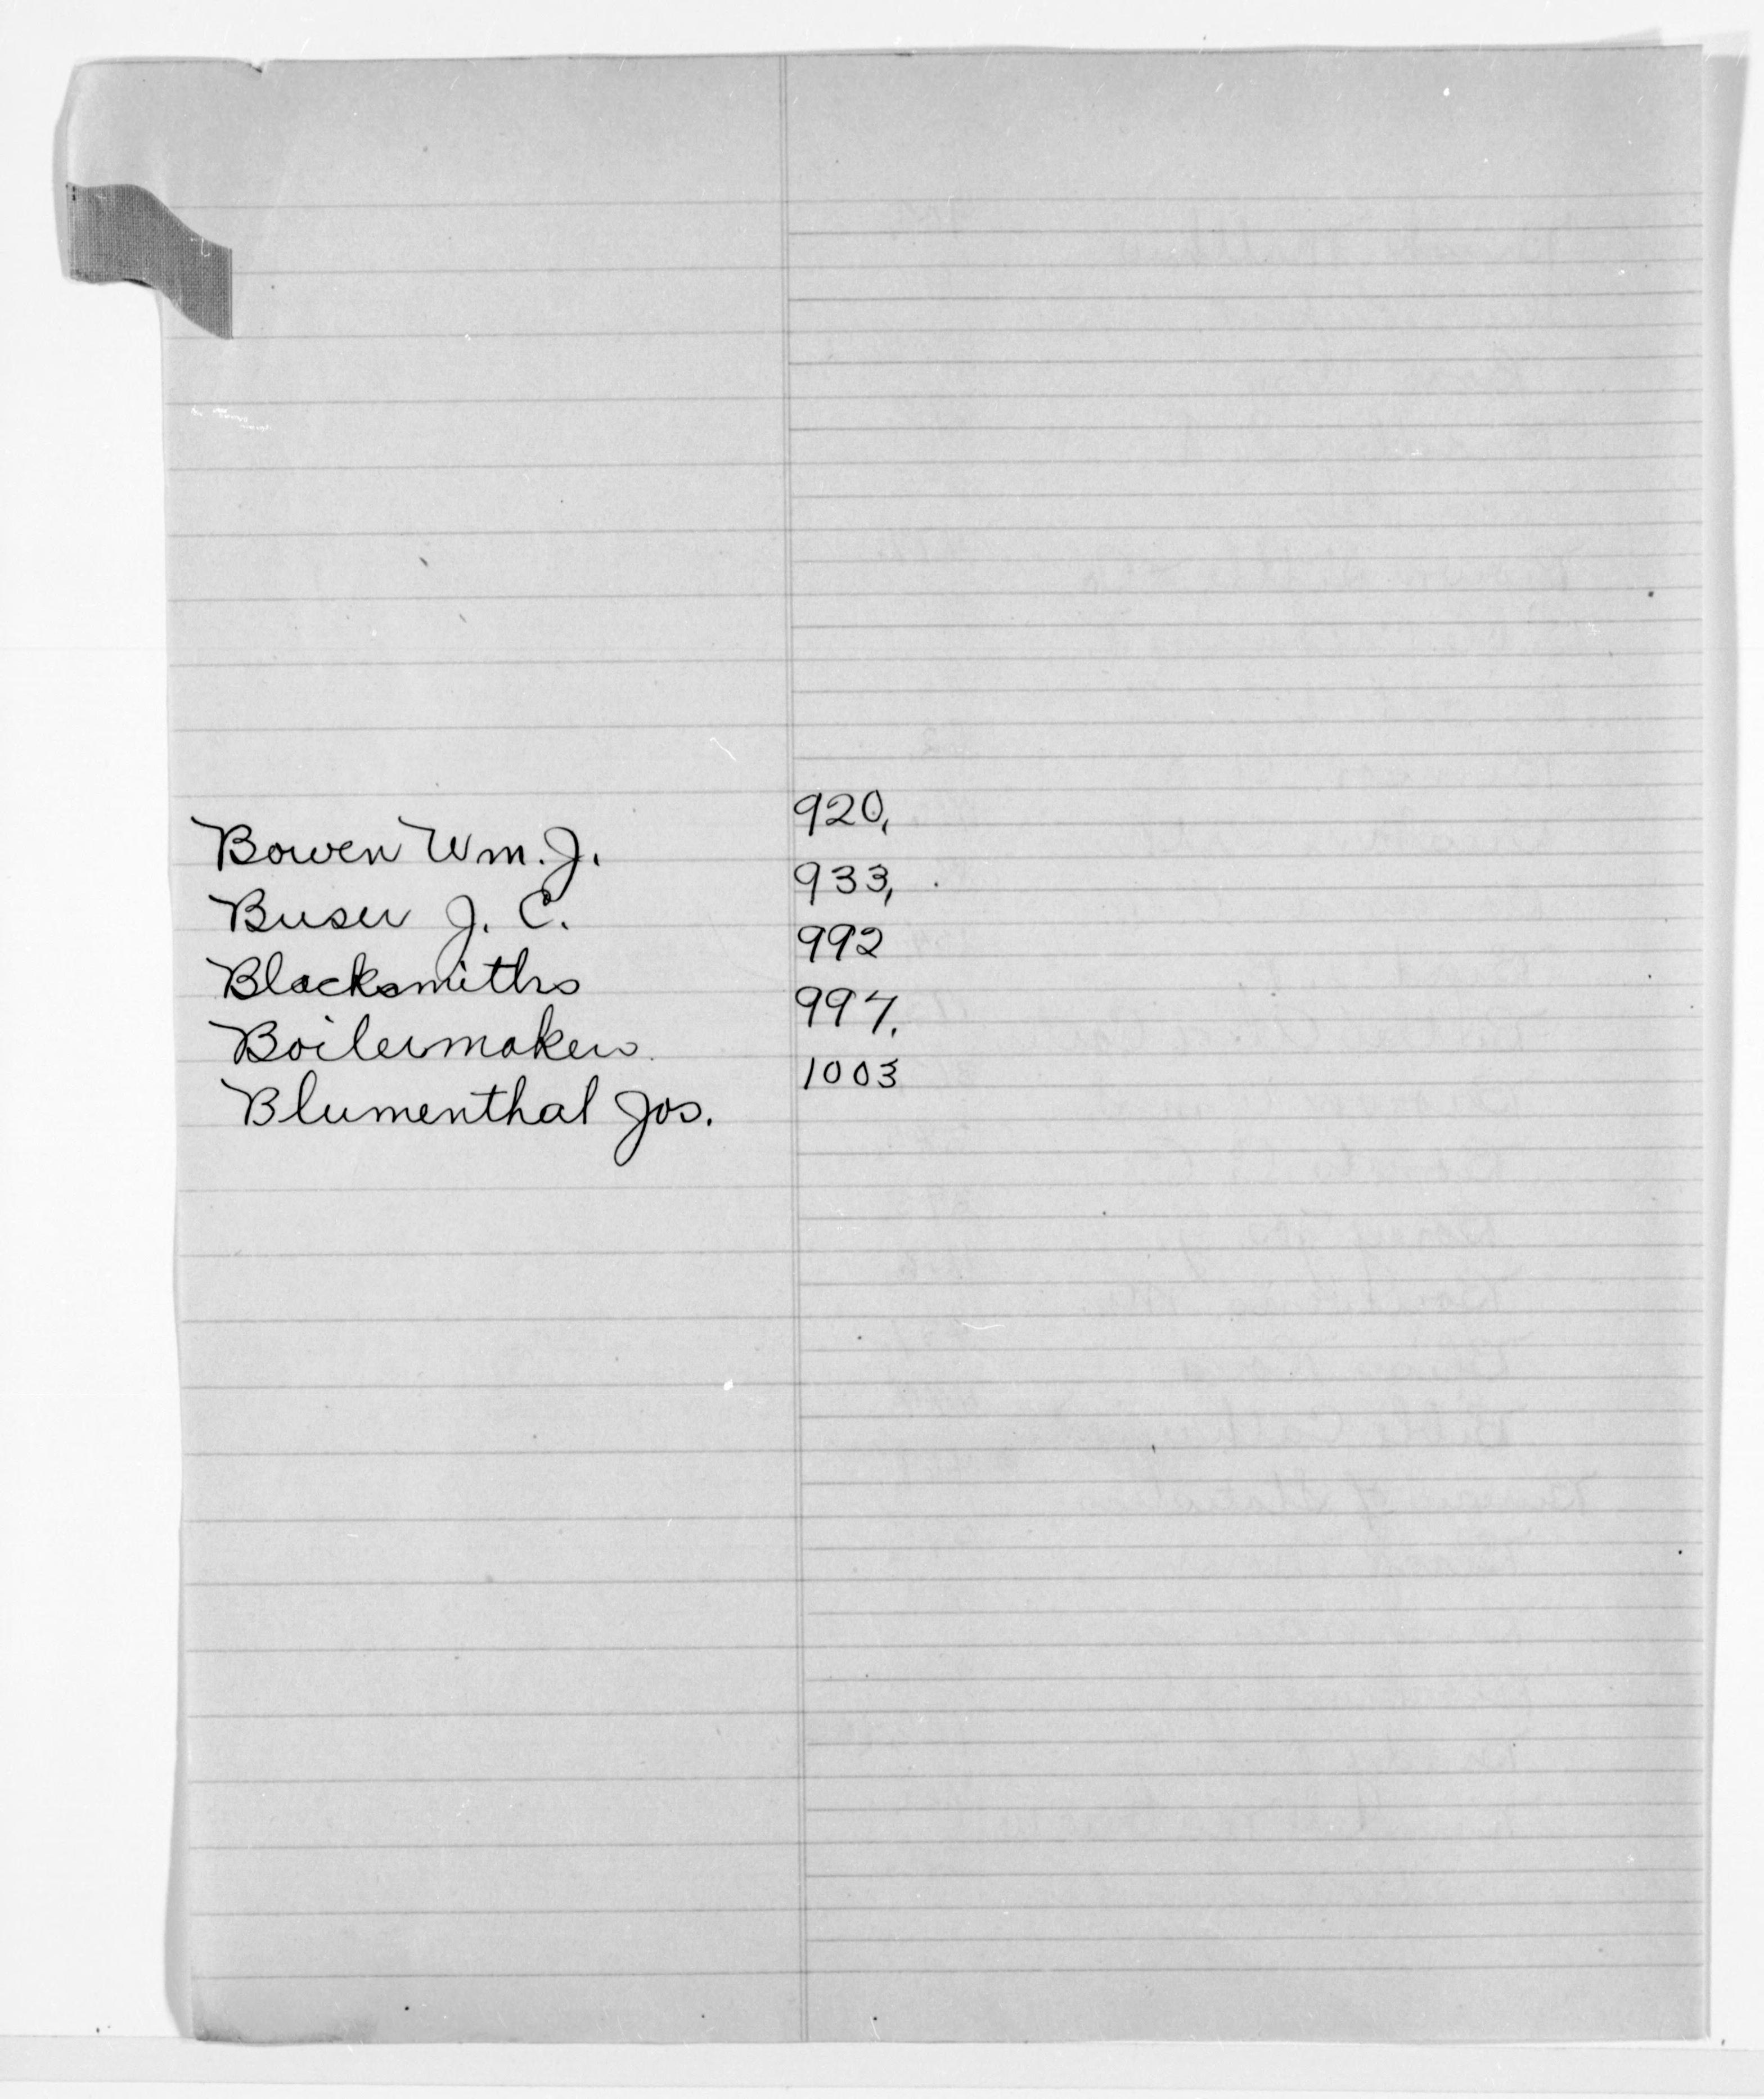 Bowen Wm. J. 920,
Buser J. C. 933,
Blacksmiths 992
Boilermakers 997.
Blumenthal Jos. 1003